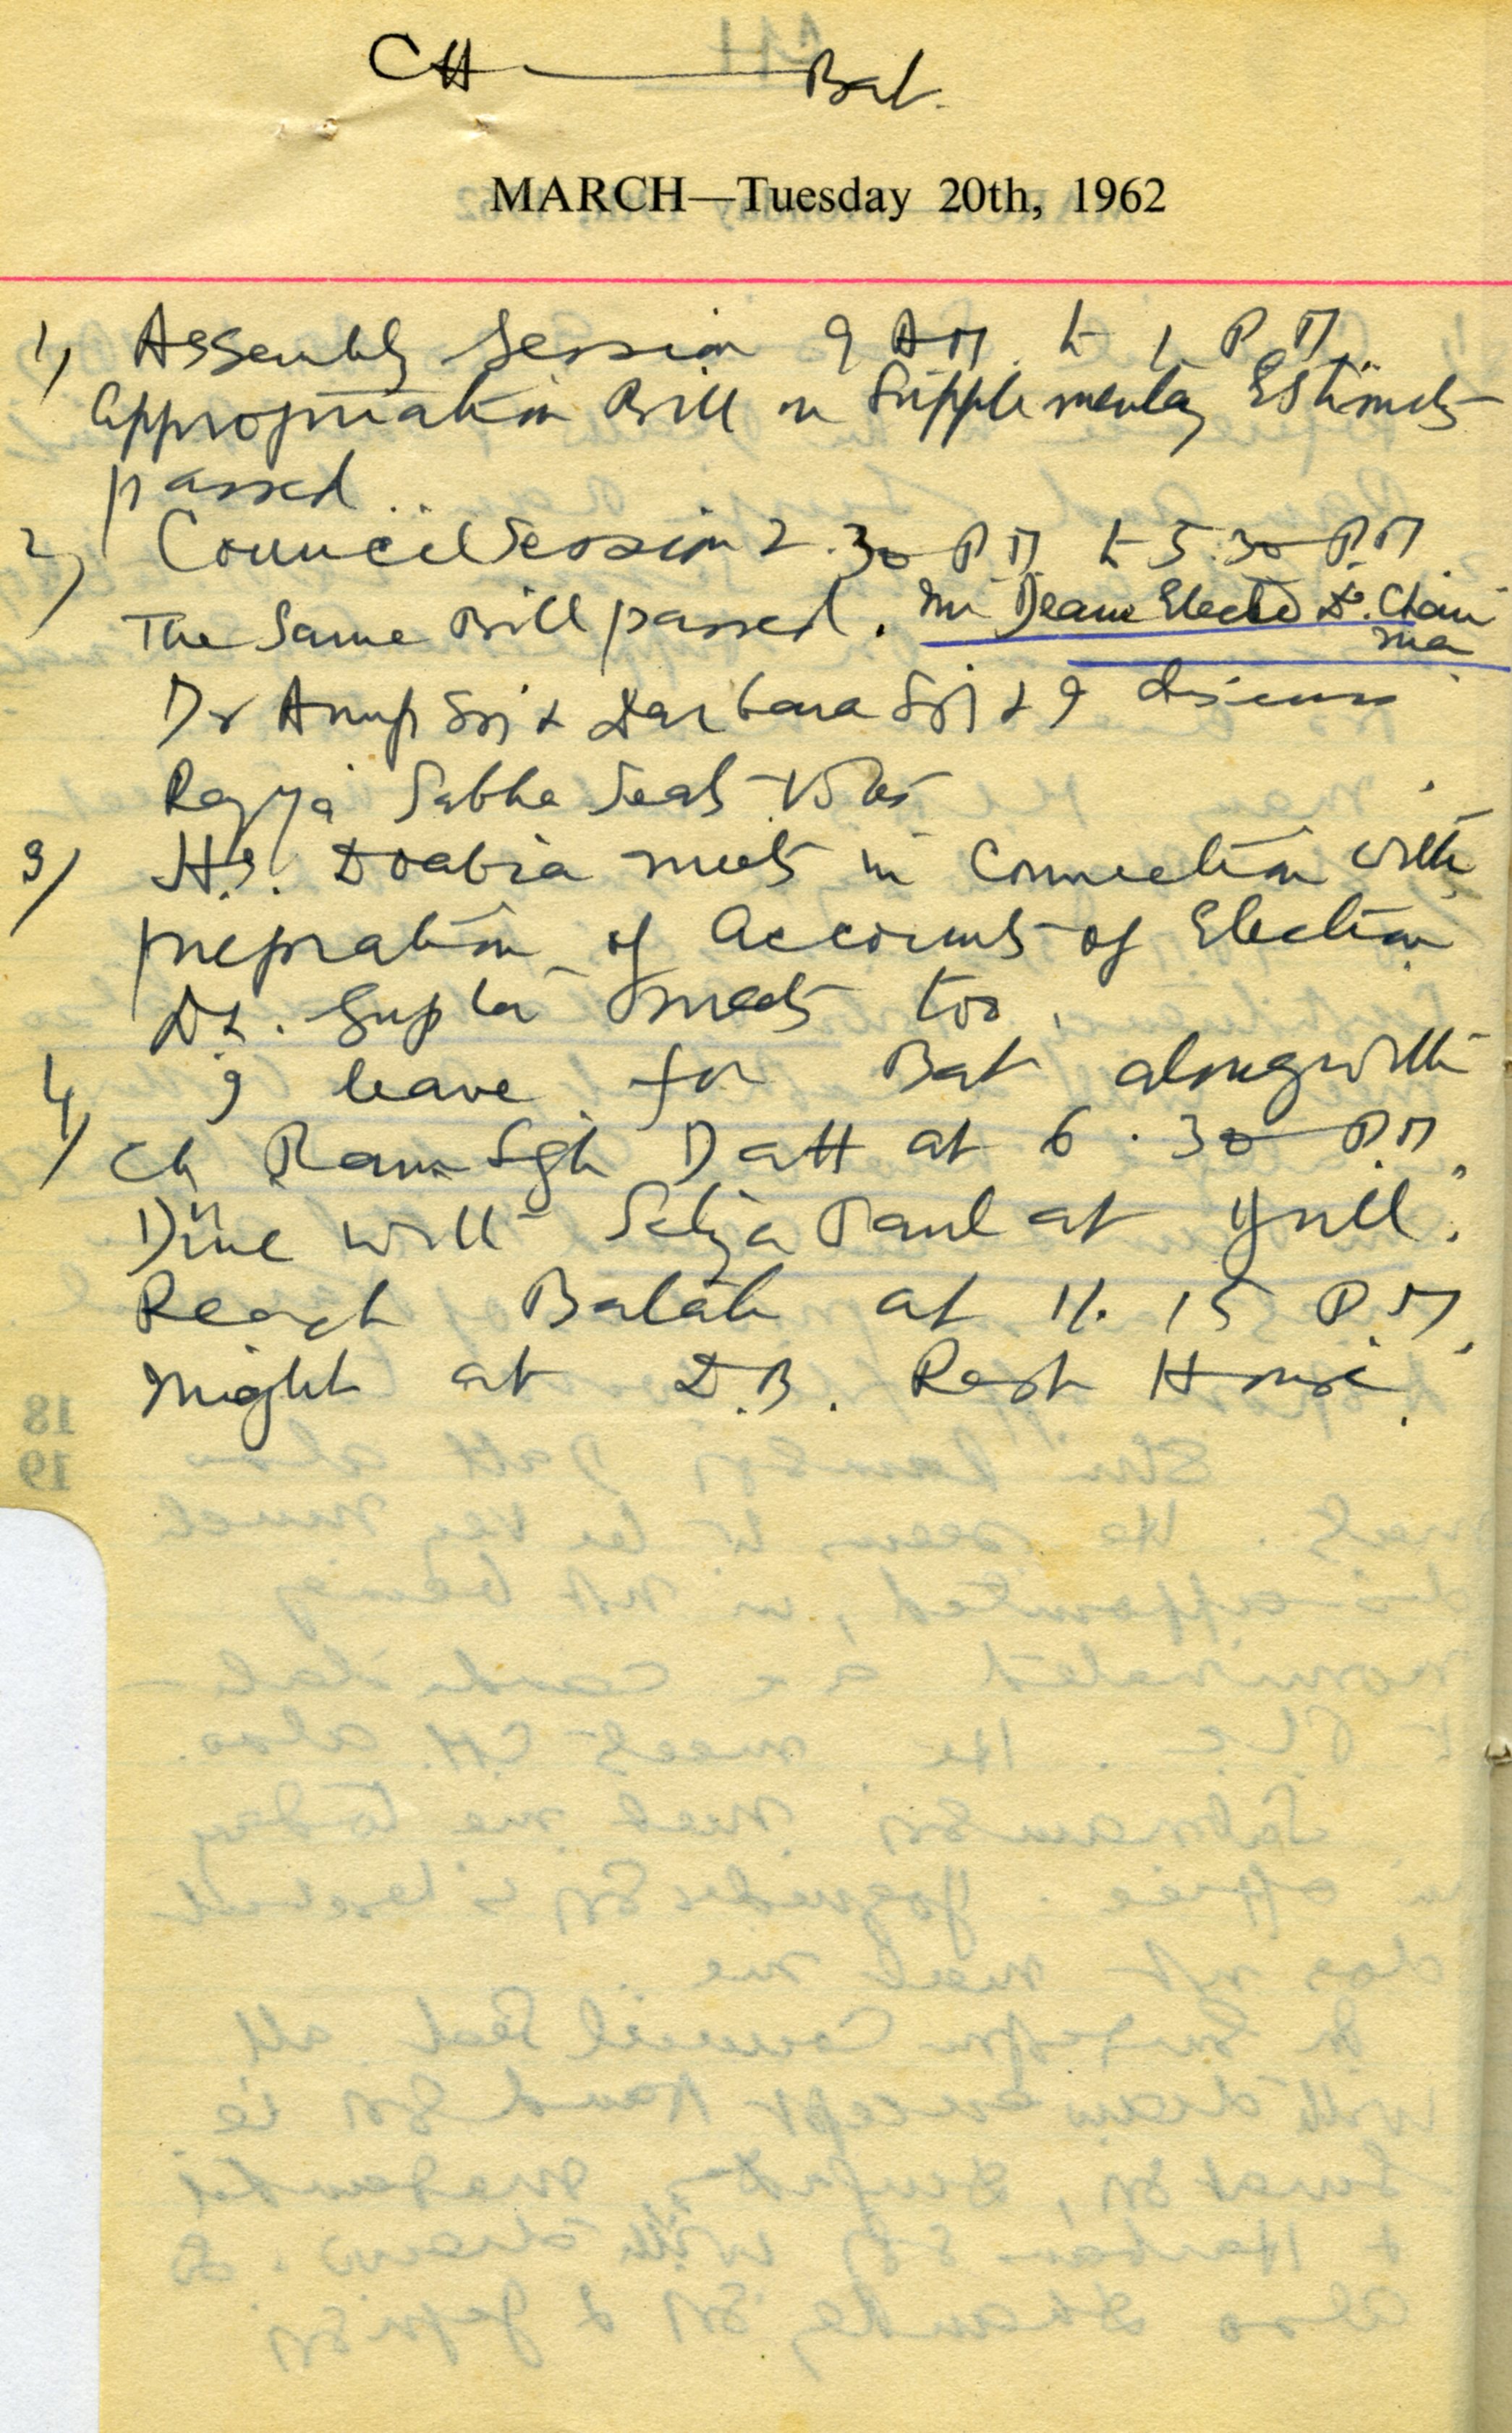 CH ——— Bat.
MARCH—Tuesday 20th, 1962
1) Assembly Session 9 AM. to 1 P.M.
Appropriation Bill on Supplementary Estimates
passed..
2) Council Session 2.30 P.M to 5.30 P.M.
The Same Bill passed. Mr Deane Elected D. Chair
man
Dr Anup Sgh & Darbara Sgh & I discuss
Rajya Sabha Seats Votes
3) H.S. Doabia meets in Connection with
prepration of Accounts of Election
Dr. Gupta meets too.
4) I leave for Bat alongwith
Ch Ram Sgh Datt at 6.30 P.M.
Dine with Satya Paul at Grill.
Reach Batala at 11.15 P.M.
Night at D.B. Rest House.
18
19